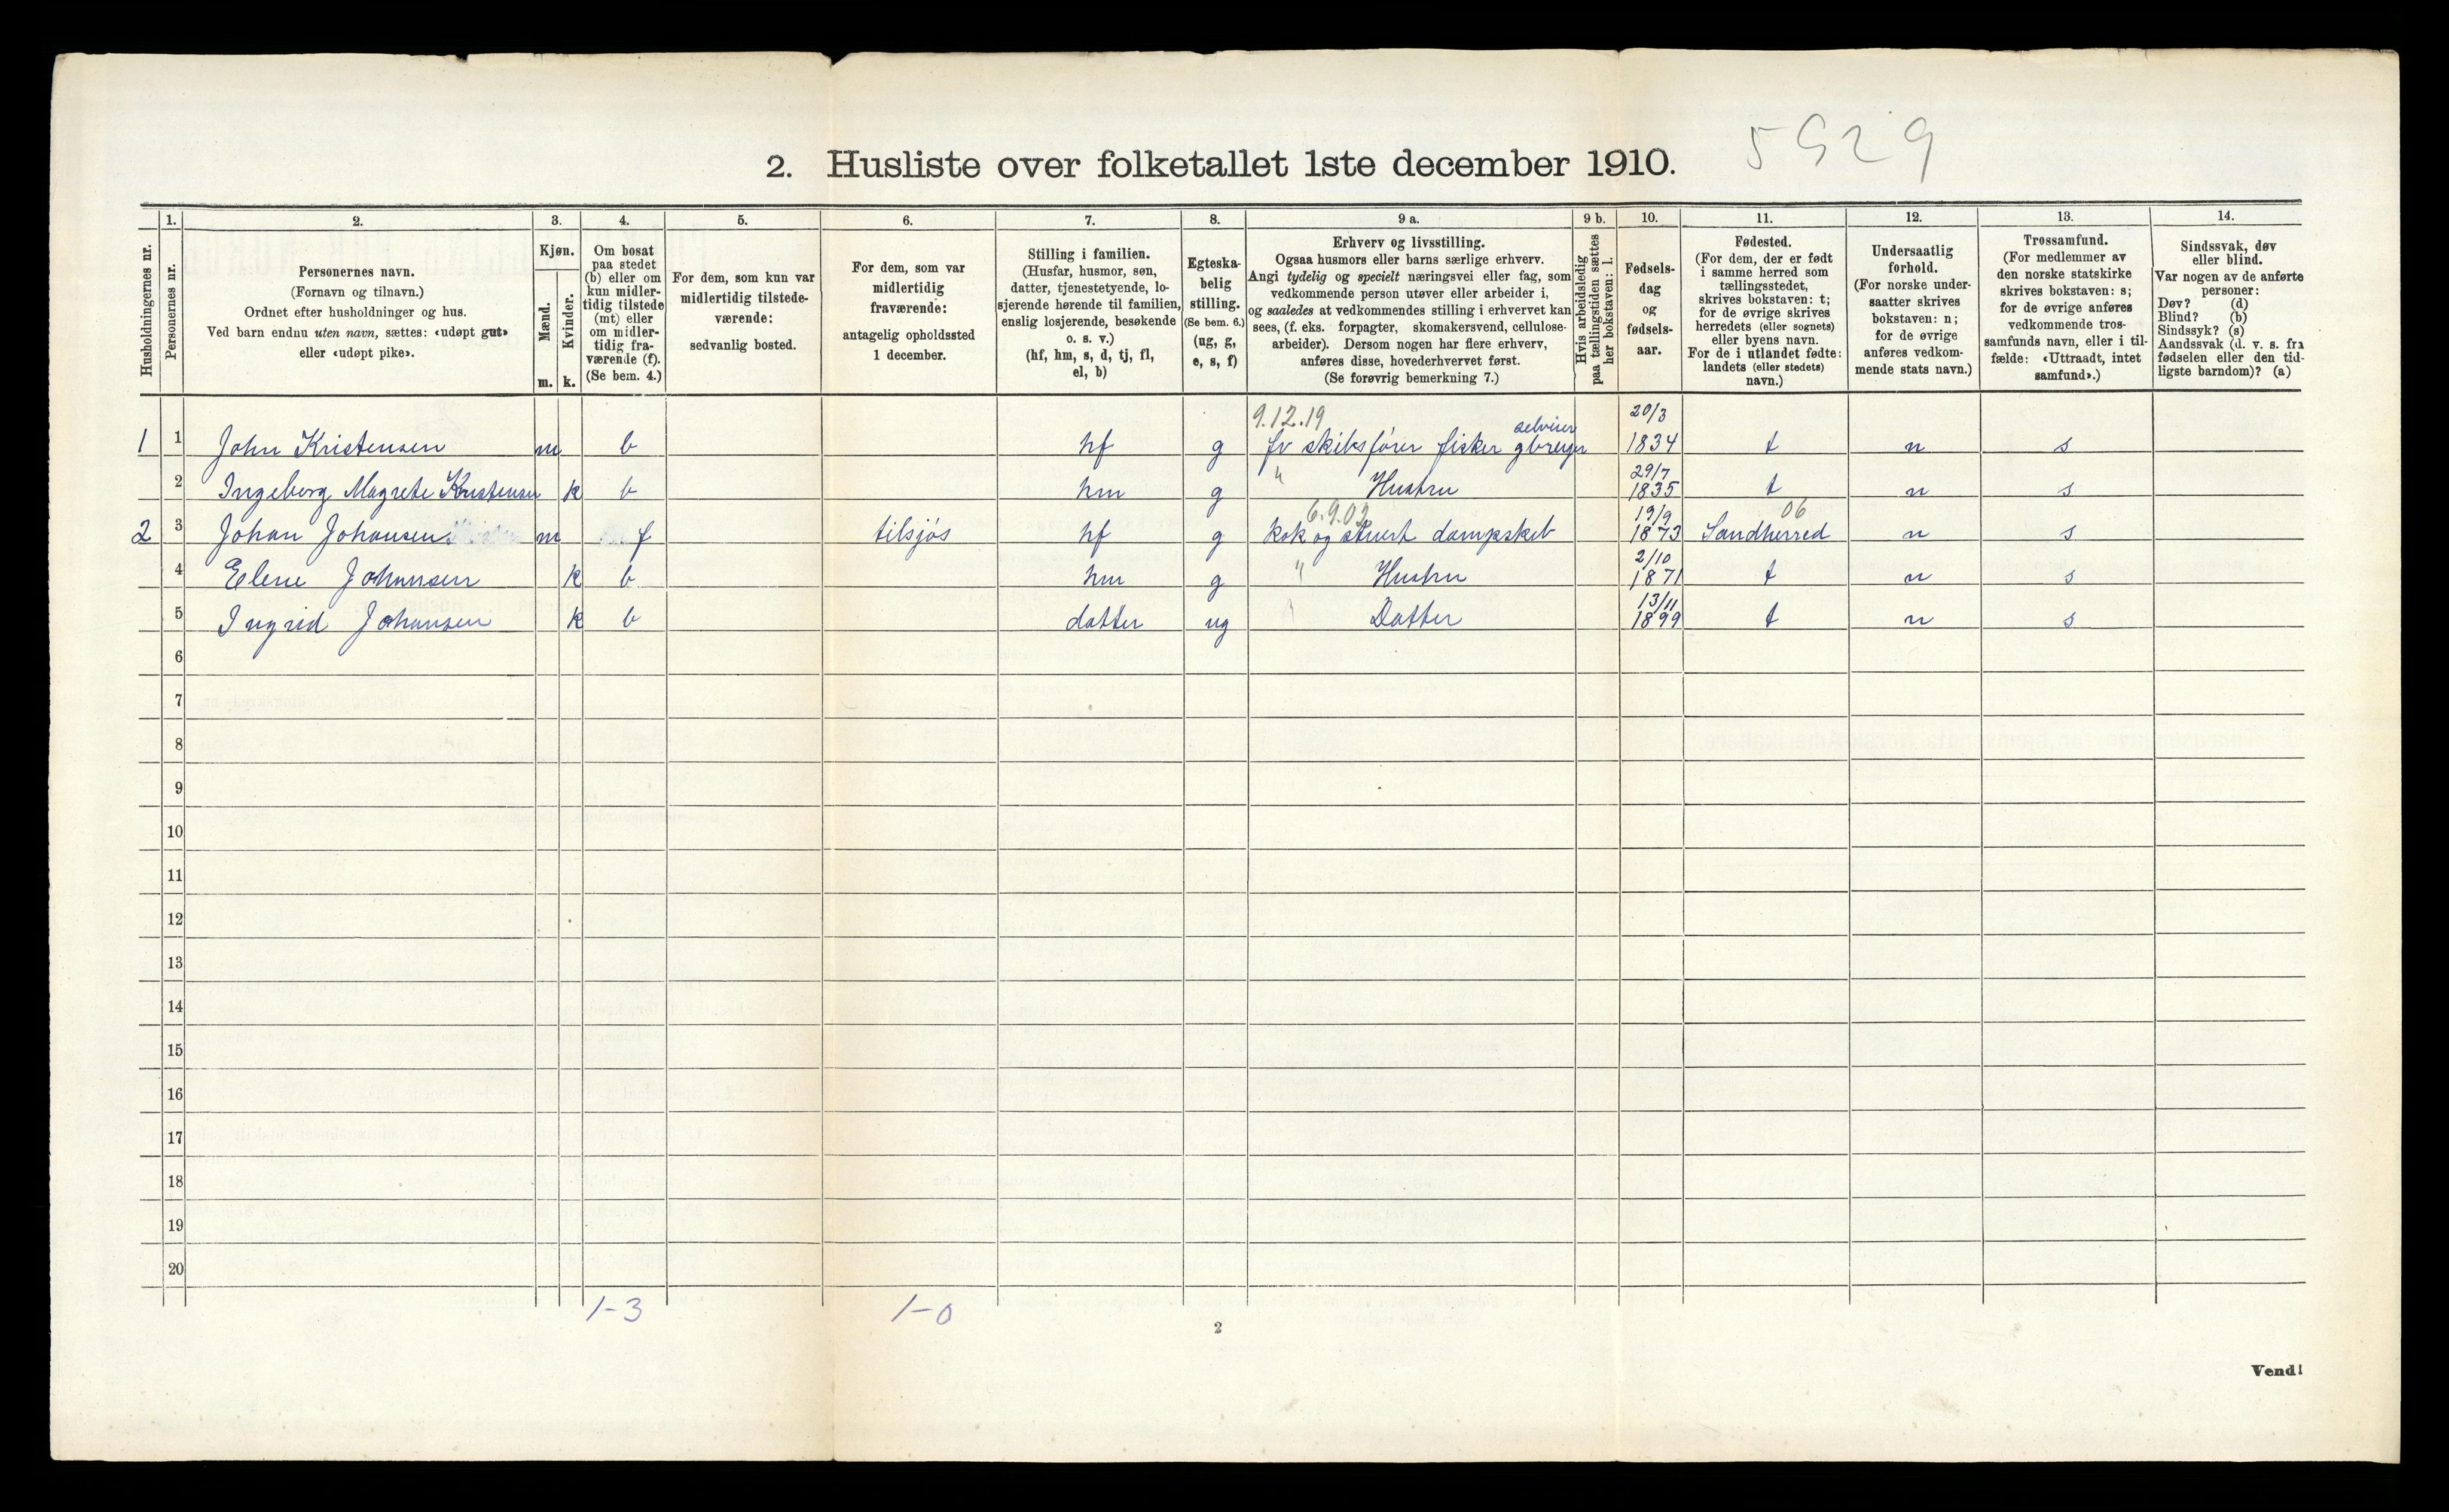 5929
2. Husliste over folketallet 1ste december 1910.
Husholdningernes nr.
1.
Personernes nr.
2.
Personernes navn.
(Fornavn og tilnavn.)
Ordnet efter husholdninger og hus.
Ved barn endnu uten navn, sættes: «udøpt gut»
eller «udøpt pike».
3.
Kjøn.
Mænd.
Kvinder.
m. k.
4.
Om bosat
paa stedet
(b) eller om
kun midler-
tidig tilstede
(mt) eller
om midler-
tidig fra-
værende (f).
(Se bem. 4.)
5.
For dem, som kun var
midlertidig tilstede-
værende:
sedvanlig bosted.
6.
For dem, som var
midlertidig
fraværende:
antagelig opholdssted
1 december.
7.
Stilling i familien.
(Husfar, husmor, søn,
datter, tjenestetyende, lo-
sjerende hørende til familien,
enslig losjerende, besøkende
o. s. v.)
(hf, hm, s, d, tj, fl,
el, b)
8.
Egteska-
belig
stilling.
(Se bem. 6.)
(ug, g,
e, s, f)
9 a.
Erhverv og livsstilling.
Ogsaa husmors eller barns særlige erhverv.
Angi tydelig og specielt næringsvei eller fag, som
vedkommende person utøver eller arbeider i,
og saaledes at vedkommendes stilling i erhvervet kan
sees, (f. eks. forpagter, skomakersvend, cellulose-
arbeider). Dersom nogen har flere erhverv,
anføres disse, hovederhvervet først.
(Se forøvrig bemerkning 7.)
9 b.
Hvis arbeidsledig
paa tællingstiden sættes
her bokstaven: l.
10.
Fødsels-
dag
og
fødsels-
aar.
11.
Fødested.
(For dem, der er født
i samme herred som
tællingsstedet,
skrives bokstaven: t;
for de øvrige skrives
herredets (eller sognets)
eller byens navn.
For de i utlandet fødte:
landets (eller stedets)
navn.)
12.
Undersaatlig
forhold.
(For norske under-
saatter skrives
bokstaven: n;
for de øvrige
anføres vedkom-
mende stats navn.)
13.
Trossamfund.
(For medlemmer av
den norske statskirke
skrives bokstaven: s;
for de øvrige anføres
vedkommende tros-
samfunds navn, eller i til-
fælde: «Uttraadt, intet
samfund».)
14.
Sindssvak, døv
eller blind.
Var nogen av de anførte
personer:
Døv? (d)
Blind? (b)
Sindssyk? (s)
Aandssvak (d. v. s. fra
fødselen eller den tid-
ligste barndom)? (a)
9.12.19 20/3
1 1 John Kristensen m b hf g fv skibsfører fisker gbruger 1834 t n s
29/7
2 Ingeborg Magrete Kristensen k b hm g " Hustru 1835 t n s
19/9 06
2 3 Johan Johansen m f tilsjøs hf g kok og stuert dampskib 1873 Sandherred n s
2/10
4 Elene Johansen k b hm g " Hustru 1871 t n s
13/11
5 Ingrid Johansen k b datter ug " Datter 1899 t n s
6
7
8
9
10
11
12
13
14
15
16
17
18
19
20
1-3 1-0
2
Vend!